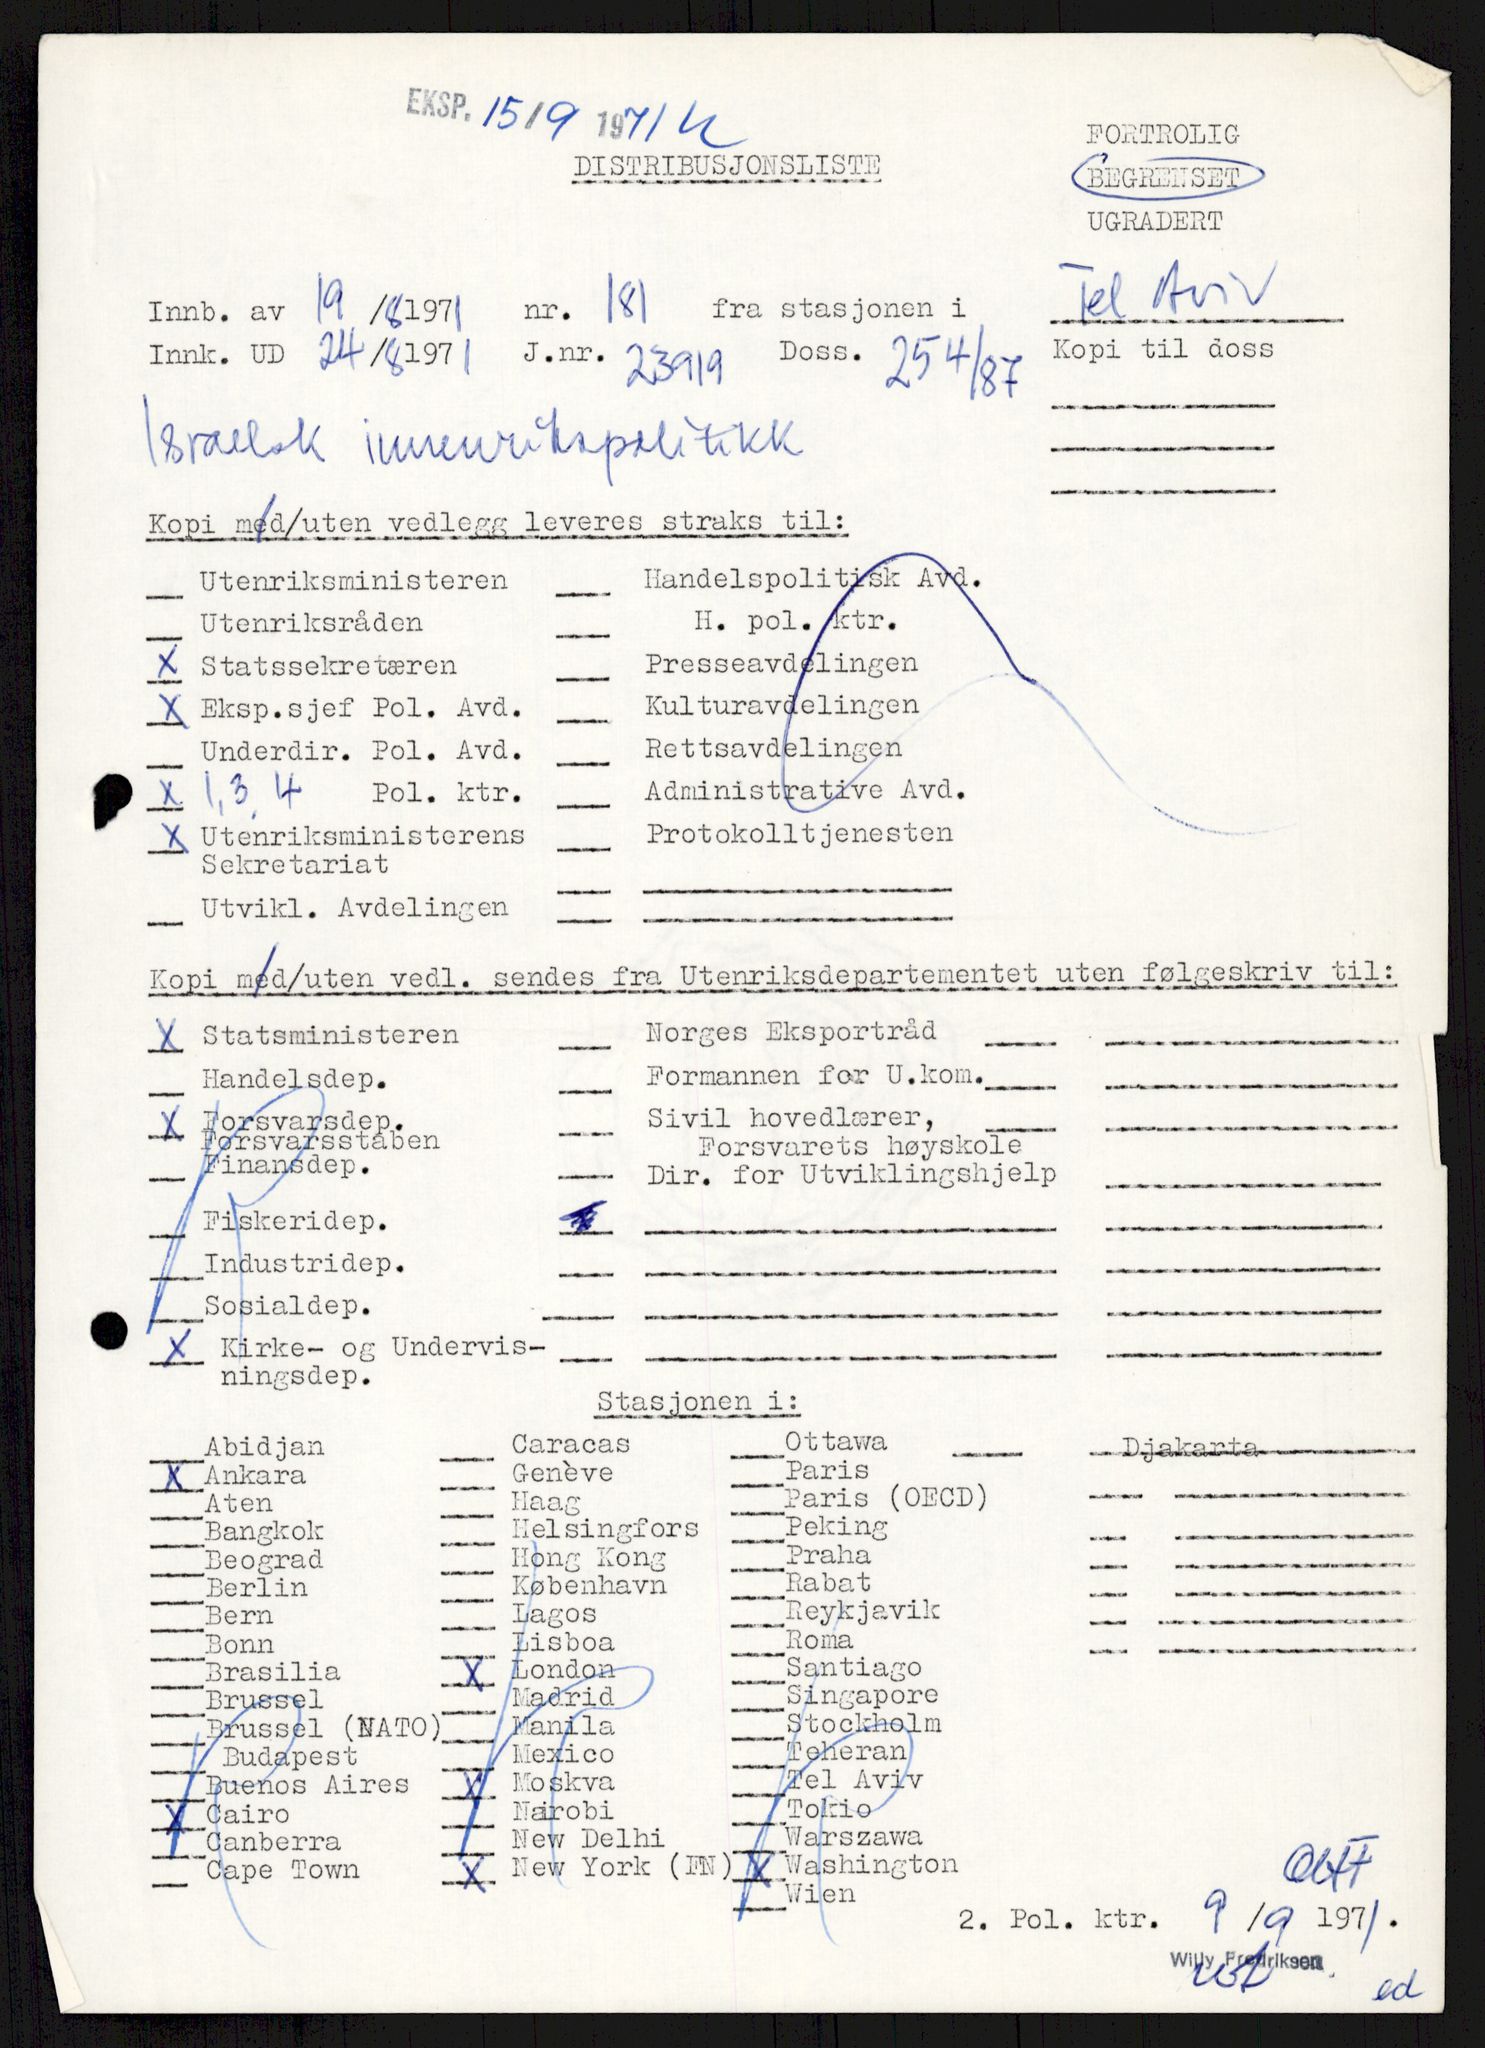 EKSP. 15/9 1971
DISTRIBUSJONSLISTE
FORTROLIG
BEGRENSET
UGRADERT
Innb. av 19/8 1971 nr. 181 fra stasjonen i Tel Aviv
Innk. UD 24/8 1971 J.nr. 23919 Doss. 254/87 Kopi til doss
Israelsk innenrikspolitikk
Kopi med/uten vedlegg leveres straks til:
Utenriksministeren Handelspolitisk Avd.
Utenriksråden H. pol. ktr.
X Statssekretæren Presseavdelingen
X Eksp.sjef Pol. Avd. Kulturavdelingen
Underdir. Pol. Avd. Rettsavdelingen
X 1, 3, 4 Pol. ktr. Administrative Avd.
X Utenriksministerens Protokolltjenesten
Sekretariat
Utvikl. Avdelingen
Kopi med/uten vedl. sendes fra Utenriksdepartementet uten følgeskriv til:
X Statsministeren Norges Eksportråd
Handelsdep. Formannen for U.kom.
X Forsvarsdep. Sivil hovedlærer,
Forsvarsstaben Forsvarets høyskole
Finansdep. Dir. for Utviklingshjelp
Fiskeridep.
Industridep.
Sosialdep.
X Kirke- og Undervis-
ningsdep.
Stasjonen i:
Abidjan Caracas Ottawa Djakarta
X Ankara Genève Paris
Aten Haag Paris (OECD)
Bangkok Helsingfors Peking
Beograd Hong Kong Praha
Berlin København Rabat
Bern Lagos Reykjavik
Bonn Lisboa Roma
Brasilia X London Santiago
Brussel Madrid Singapore
Brussel (NATO) Manila Stockholm
Budapest Mexico Teheran
Buenos Aires X Moskva Tel Aviv
X Cairo Nairobi Tokio
Canberra New Delhi Warszawa
Cape Town X New York (FN) X Washington
Wien
2. Pol. ktr. 9/9 1971.
Willy Fredriksen
ed